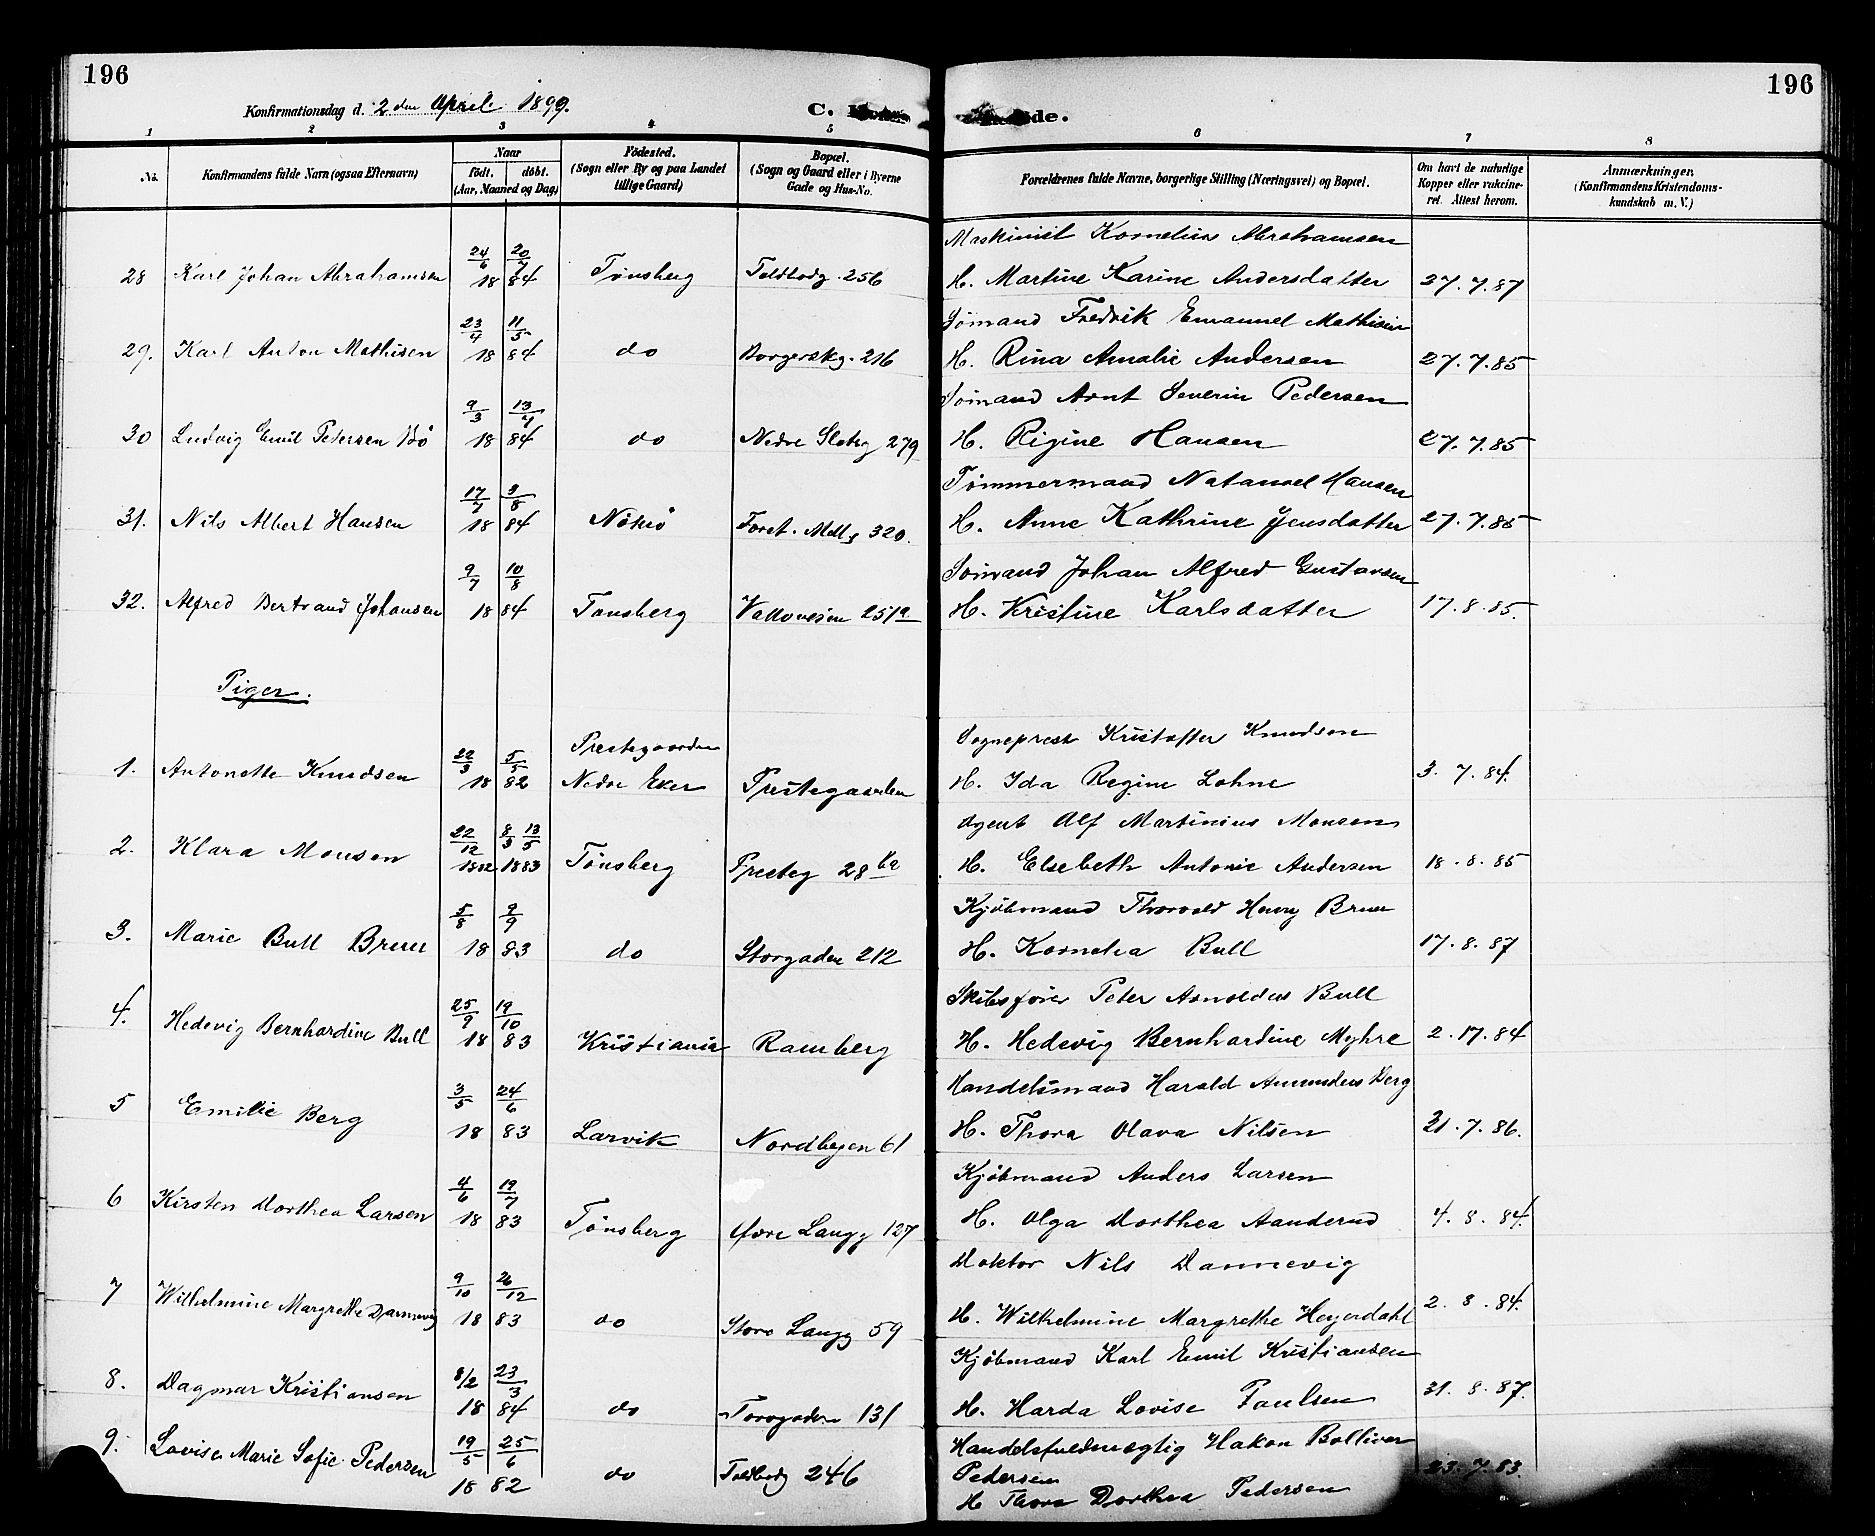 196
196
Konfirmationsdag d. 2den April 1899.
C. de.
1 2 3 4 5 6 7 8
No.
Konfirmandens fulde Navn (ogsaa Efternavn)
Naar
født. døbt.
(Aar, Maaned og Dag)
Fødested.
(Sogn eller By og paa Landet
tillige Gaard)
Bopæl.
(Sogn og Gaard eller i Byerne
Gade og Hus-No.
Forældrenes fulde Navne, borgerlige Stilling (Næringsvei) og Bopæl.
Om havt de naturlige
Kopper eller vaccine-
ret. Attest herom.
Anmærkninger.
(Konfirmandens Kristendoms-
kundskab m. V.)
Maskinist Kornelius Abrahamsen
28 Karl Johan Abrahamsen 24/6 20/7 18 84 Tønsberg Toldbodg. 256 H. Martine Karine Andersdatter 27.7.87
Sömand Fredrik Emanuel Mathisen
29. Karl Anton Mathisen 23/4 11/5 18 84 do Borgerskg. 216 H. Rina Amalie Andersen 27.7.85
Sömand Arnt Severin Pedersen
30 Ludvig Emil Petersen Bö 9/3 13/4 18 84 do Nedre Slotsg 279 H. Rigine Hansen 27.7.85
Tömmermand Natanael Hansen
31. Nils Albert Hansen 17/7 3/8 18 84 Nöterö 320. H. Anne Kathrine Jensdatter 27.7.85
Sömand Johan Alfred Gustavsen
32. Alfred Bertrand Johansen 9/7 10/8 18 84 Tønsberg Valloveien 251a H. Kristine Karlsdatter 17.8.85.
Piger.
Prestegaarden Sogneprest Kristoffer Knudsen
1. Antonette Knudsen 22/3 5/5 18 82 Nedre Eker Prestegaarden H. Ida Regine Lohne 3. 7. 84.
Agent Alf Martinius Monsen
2. Klara Monsen 22/12 8/3 13/5 1882 1883 Tønsberg Presteg 28 H. Elsebeth Antonie Andersen 18. 8. 85
Kjöbmand Thorvald Henry Bruu
3. Marie Bull Bruu 5/8 9/9 18 83 do Storgaden 212 H. Kornelia Bull 17.8.87
Skibsförer Peter Arnoldus Bull
4. Hedevig Bernhardine Bull 25/9 19/10 18 83 Kristiania Ramberg H. Hedevig Bernhardine Myhre 2. 17. 84
Handelsmand Harald Amundus Berg
5 Emilie Berg 3/5 24/6 18 83 Larvik Nordbyen 61 H. Thora Olava Nilsen 21. 7. 86.
Kjöbmand Anders Larsen
6 Kirsten Dorthea Larsen 4/6 19/7 18 83 Tönsberg Övre Langg 127 H. Olga Dorthea Aanderud 4. 8. 84.
Doktor Nils Dannevig
7 Wilhelmine Margrethe Dannevig 9/10 26/12 18 83 do Store Langg 59 H. Wilhelmine Margrethe Heyerdahl 2. 8. 84.
Kjöbmand Karl Emil Kristiansen
8. Dagmar Kristiansen 8/2 23/3 18 84 do Torvgaden 131 H. Harda Lovise Paulsen 31. 8. 87.
Handelsfuldmægtig Hakon Bolliver
9. Lovise Marie Sofie Pedersen 19/5 25/6 18 82 do Toldbodg 246 Pedersen 23.7.83.
H Thora Dorthea Pedersen